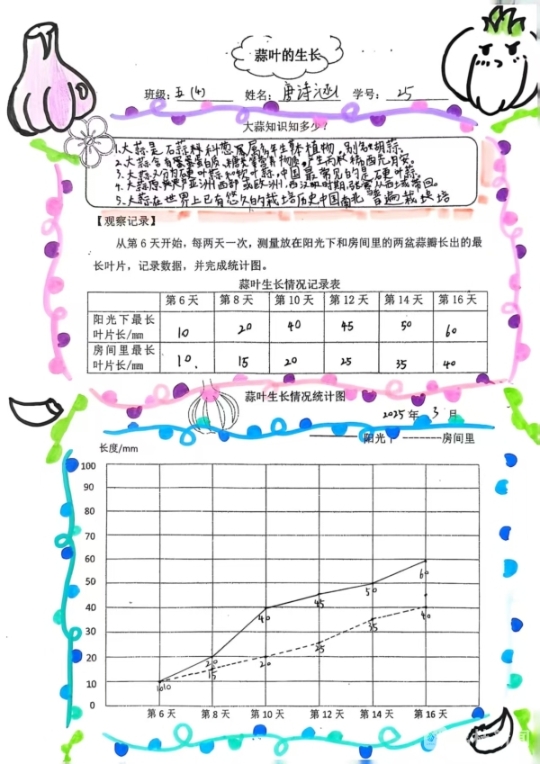 蒜叶的生长
班级：五(4) 姓名：唐诗涵 学号：25
大蒜知识知多少？
1.大蒜是石蒜科葱属多年生草本植物，别名胡蒜。
2.大蒜含有蛋白质、糖类等营养物
3.大蒜又分为硬叶蒜和软叶蒜，中国最常见的是硬叶蒜。
4.大蒜原产亚洲西部或欧洲，西汉时期，从西域带回。
5.大蒜在世界上已有悠久的栽培历史中国南北普遍栽培
【观察记录】
从第6天开始，每两天一次，测量放在阳光下和房间里的两盆蒜瓣长出的最
长叶片，记录数据，并完成统计图。
蒜叶生长情况记录表
第6天 第8天 第10天 第12天 第14天 第16天
阳光下最长
叶片长/mm 10 20 40 45 50 60
房间里最长
叶片长/mm 10. 15 20 25 35 40
蒜叶生长情况统计图
2025年3月
阳光下 房间里
长度/mm
100
90
80
70
60
50
40
30
20
10
0
60
50
45
40
40
35
25
20
20
15
10 10
第6天 第8天 第10天 第12天 第14天 第16天